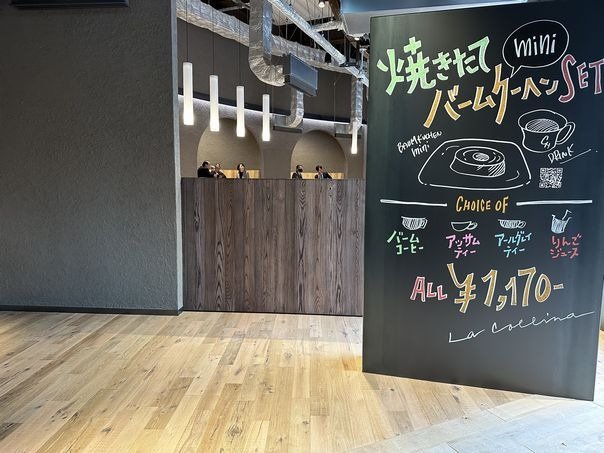 焼きたて mini
バームクーヘン SET
BAUMKUCHEN
mini
DRINK
CHOICE OF
バーム
コーヒー
アッサム
ティー
アールグレイ
ティー
りんご
ジュース
ALL ¥1,170-
La Collina